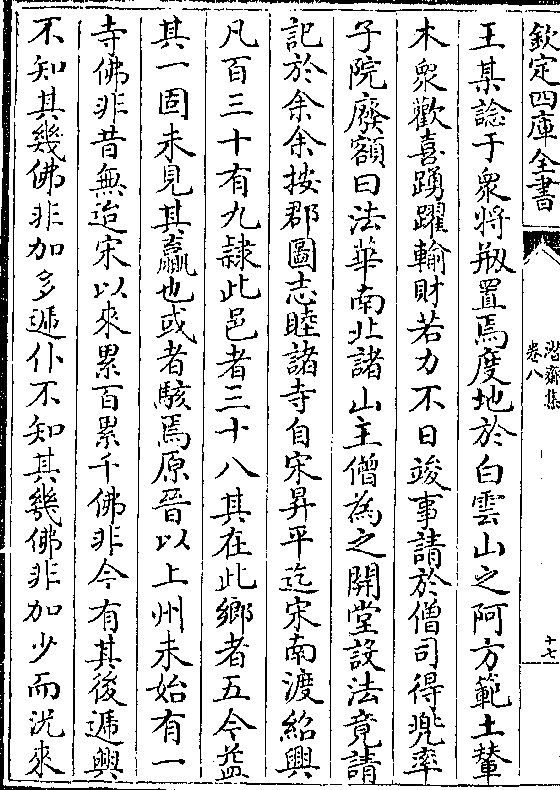 欽定四庫全書
潛齋集
卷八
十七
王某諗于衆將剏置焉度地於白雲山之阿方範土輂
木衆歡喜踴躍輸財若力不日竣事請於僧司得兜率
子院廢額曰法華南北諸山主僧為之開堂設法竟請
記於余余按郡圖志睦諸寺自宋昇平迄宋南渡紹興
凡百三十有九隷此邑者三十八其在此鄉者五今益
其一固未見其贏也或者駭焉原晉以上州未始有一
寺佛非昔無迨宋以來累百累千佛非今有其後遞興
不知其幾佛非加多遞仆不知其幾佛非加少而况來